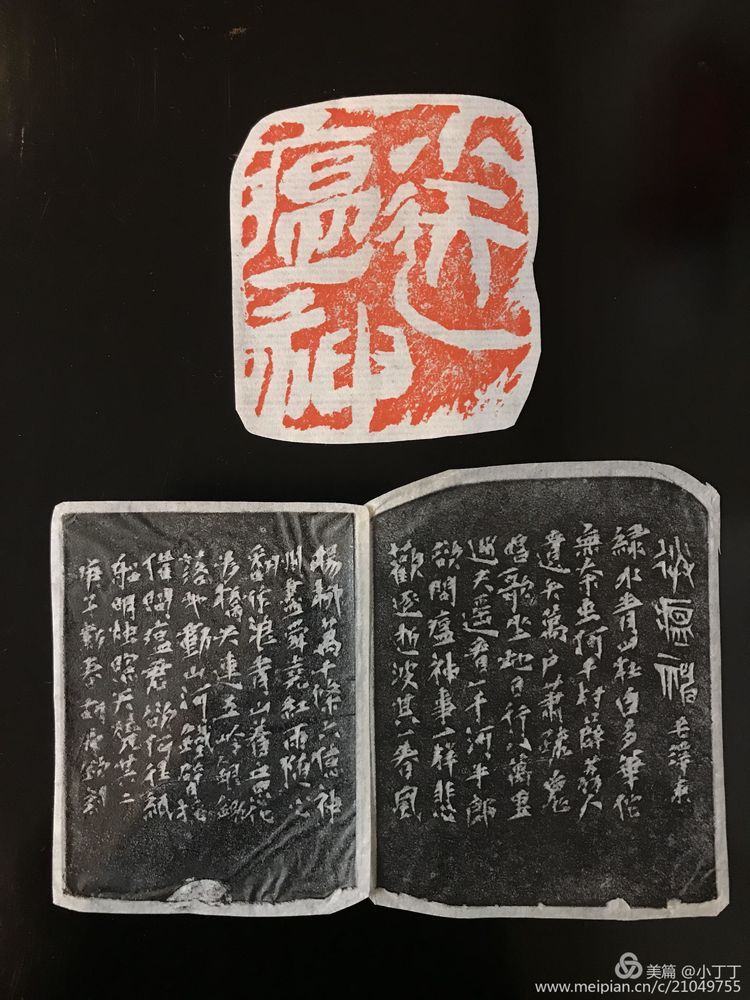 送
瘟神
送瘟神 毛澤東
綠水青山枉自多華佗
無奈虫何千村薜荔人
遺矢萬戶蕭疏鬼
唱歌坐地日行八萬里
巡天遙看一千河牛郎
欲問瘟神事一樣悲
歡逐逝波其一春風
楊柳萬千條六億神
州盡舜堯紅雨隨心
翻作浪青山着意化
為橋天連五岭銀鋤
落地動山河鐵臂搖
借問瘟君欲何往紙
船明燭照天燒其二
刻
美篇 @小丁丁
www.meipian.cn/c/21049755